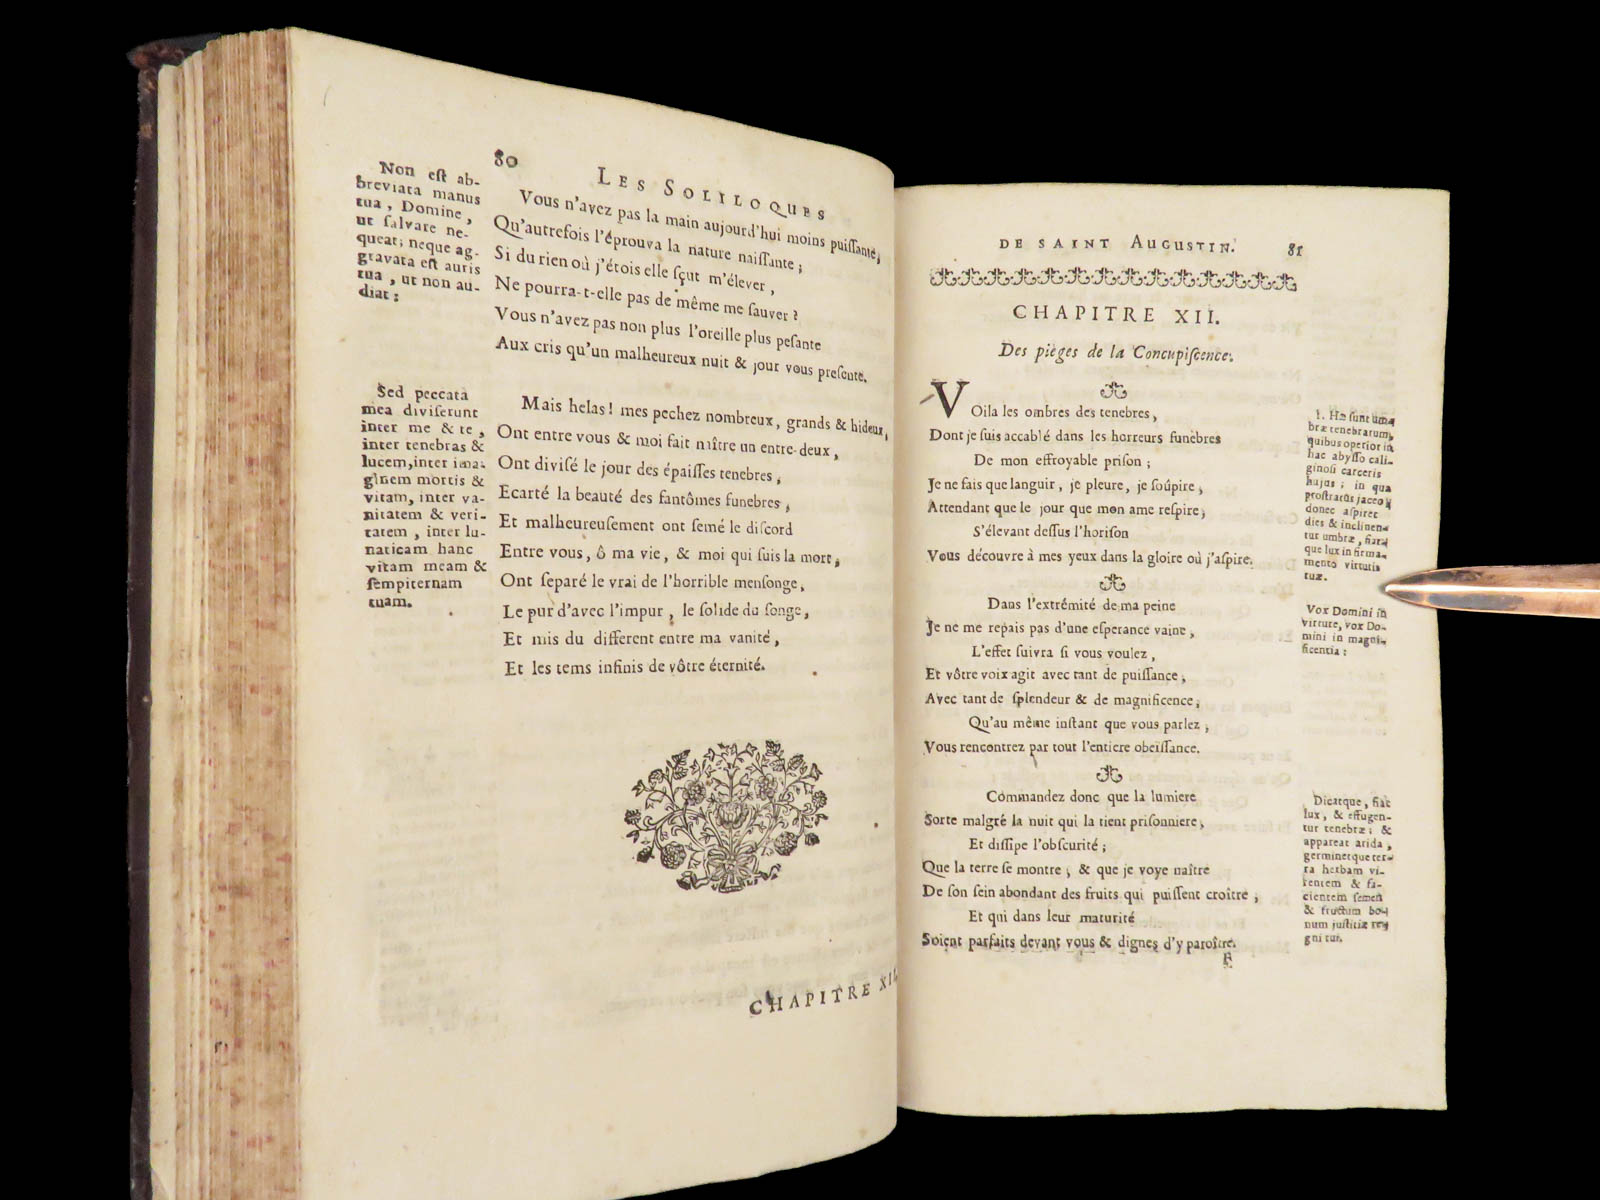 80
LES SOLILOQUES
Non eſt ab-
breviata manus
tua, Domine,
ut ſalvare ne-
queat; neque ag-
gravata eſt auris
tua, ut non au-
diat:
Vous n'avez pas la main aujourd'hui moins puiſſante,
Qu'autrefois l'éprouva la nature naiſſante;
Si du rien où j'étois elle ſçut m'élever,
Ne pourra-t-elle pas de même me ſauver?
Vous n'avez pas non plus l'oreille plus peſante
Aux cris qu'un malheureux nuit & jour vous preſente.
Sed peccata
mea diviſerunt
inter me & te,
inter tenebras &
lucem, inter ima-
ginem mortis &
vitam, inter va-
nitatem & veri-
tatem, inter lu-
naticam hanc
vitam meam &
ſempiternam
tuam.
Mais helas! mes pechez nombreux, grands & hideux,
Ont entre vous & moi fait naître un entre-deux,
Ont diviſé le jour des épaiſſes tenebres,
Ecarté la beauté des fantômes funebres,
Et malheureuſement ont ſemé le diſcord
Entre vous, ô ma vie, & moi qui ſuis la mort,
Ont ſeparé le vrai de l'horrible menſonge,
Le pur d'avec l'impur, le ſolide du ſonge,
Et mis du different entre ma vanité,
Et les tems infinis de vôtre éternité.
CHAPITRE XII.
DE SAINT AUGUSTIN.
81
CHAPITRE XII.
Des pièges de la Concupiſcence.
VOila les ombres des tenebres,
Dont je ſuis accablé dans les horreurs funèbres
De mon effroyable priſon;
Je ne fais que languir, je pleure, je ſoûpire,
Attendant que le jour que mon ame reſpire,
S'élevant deſſus l'horiſon
Vous découvre à mes yeux dans la gloire où j'aſpire.
Dans l'extrémité de ma peine
Je ne me repais pas d'une eſperance vaine,
L'effet ſuivra ſi vous voulez,
Et vôtre voix agit avec tant de puiſſance,
Avec tant de ſplendeur & de magnificence,
Qu'au même inſtant que vous parlez,
Vous rencontrez par tout l'entiere obeïſſance.
Commandez donc que la lumiere
Sorte malgré la nuit qui la tient priſonniere,
Et diſſipe l'obſcurité;
Que la terre ſe montre, & que je voye naître
De ſon ſein abondant des fruits qui puiſſent croître,
Et qui dans leur maturité
Soient parfaits devant vous & dignes d'y paroître.
F
1. Hæ ſunt um-
bræ tenebrarum,
quibus operior in
hac abyſſo cali-
ginoſi carceris
hujus; in qua
proſtratus jaceo,
donec aſpiret
dies & inclinen-
tur umbræ, fiat-
que lux in firma-
mento virtutis
tuæ.
Vox Domini in
virtute, vox Do-
mini in magni-
ficentia:
Dicatque, fiat
lux, & effugen-
tur tenebræ; &
appareat arida,
germinetque ter-
ra herbam vi-
rentem & fa-
cientem ſemen
& fructum bo-
num juſtitiæ re-
gni tui.